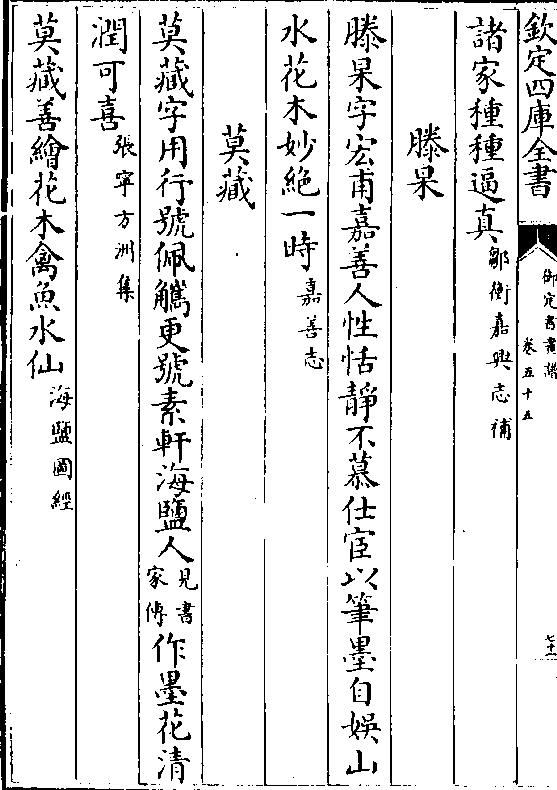 欽定四庫全書
御定書畫譜
卷五十五
七十一
諸家種種逼真鄒衡嘉興志補
滕杲
滕杲字宏甫嘉善人性恬靜不慕仕宦以筆墨自娛山
水花木妙絶一時嘉善志
莫藏
莫藏字用行號佩觹更號素軒海鹽人見書家傳作墨花清
潤可喜張寧方洲集
莫藏善繪花木禽魚水仙海鹽圖經